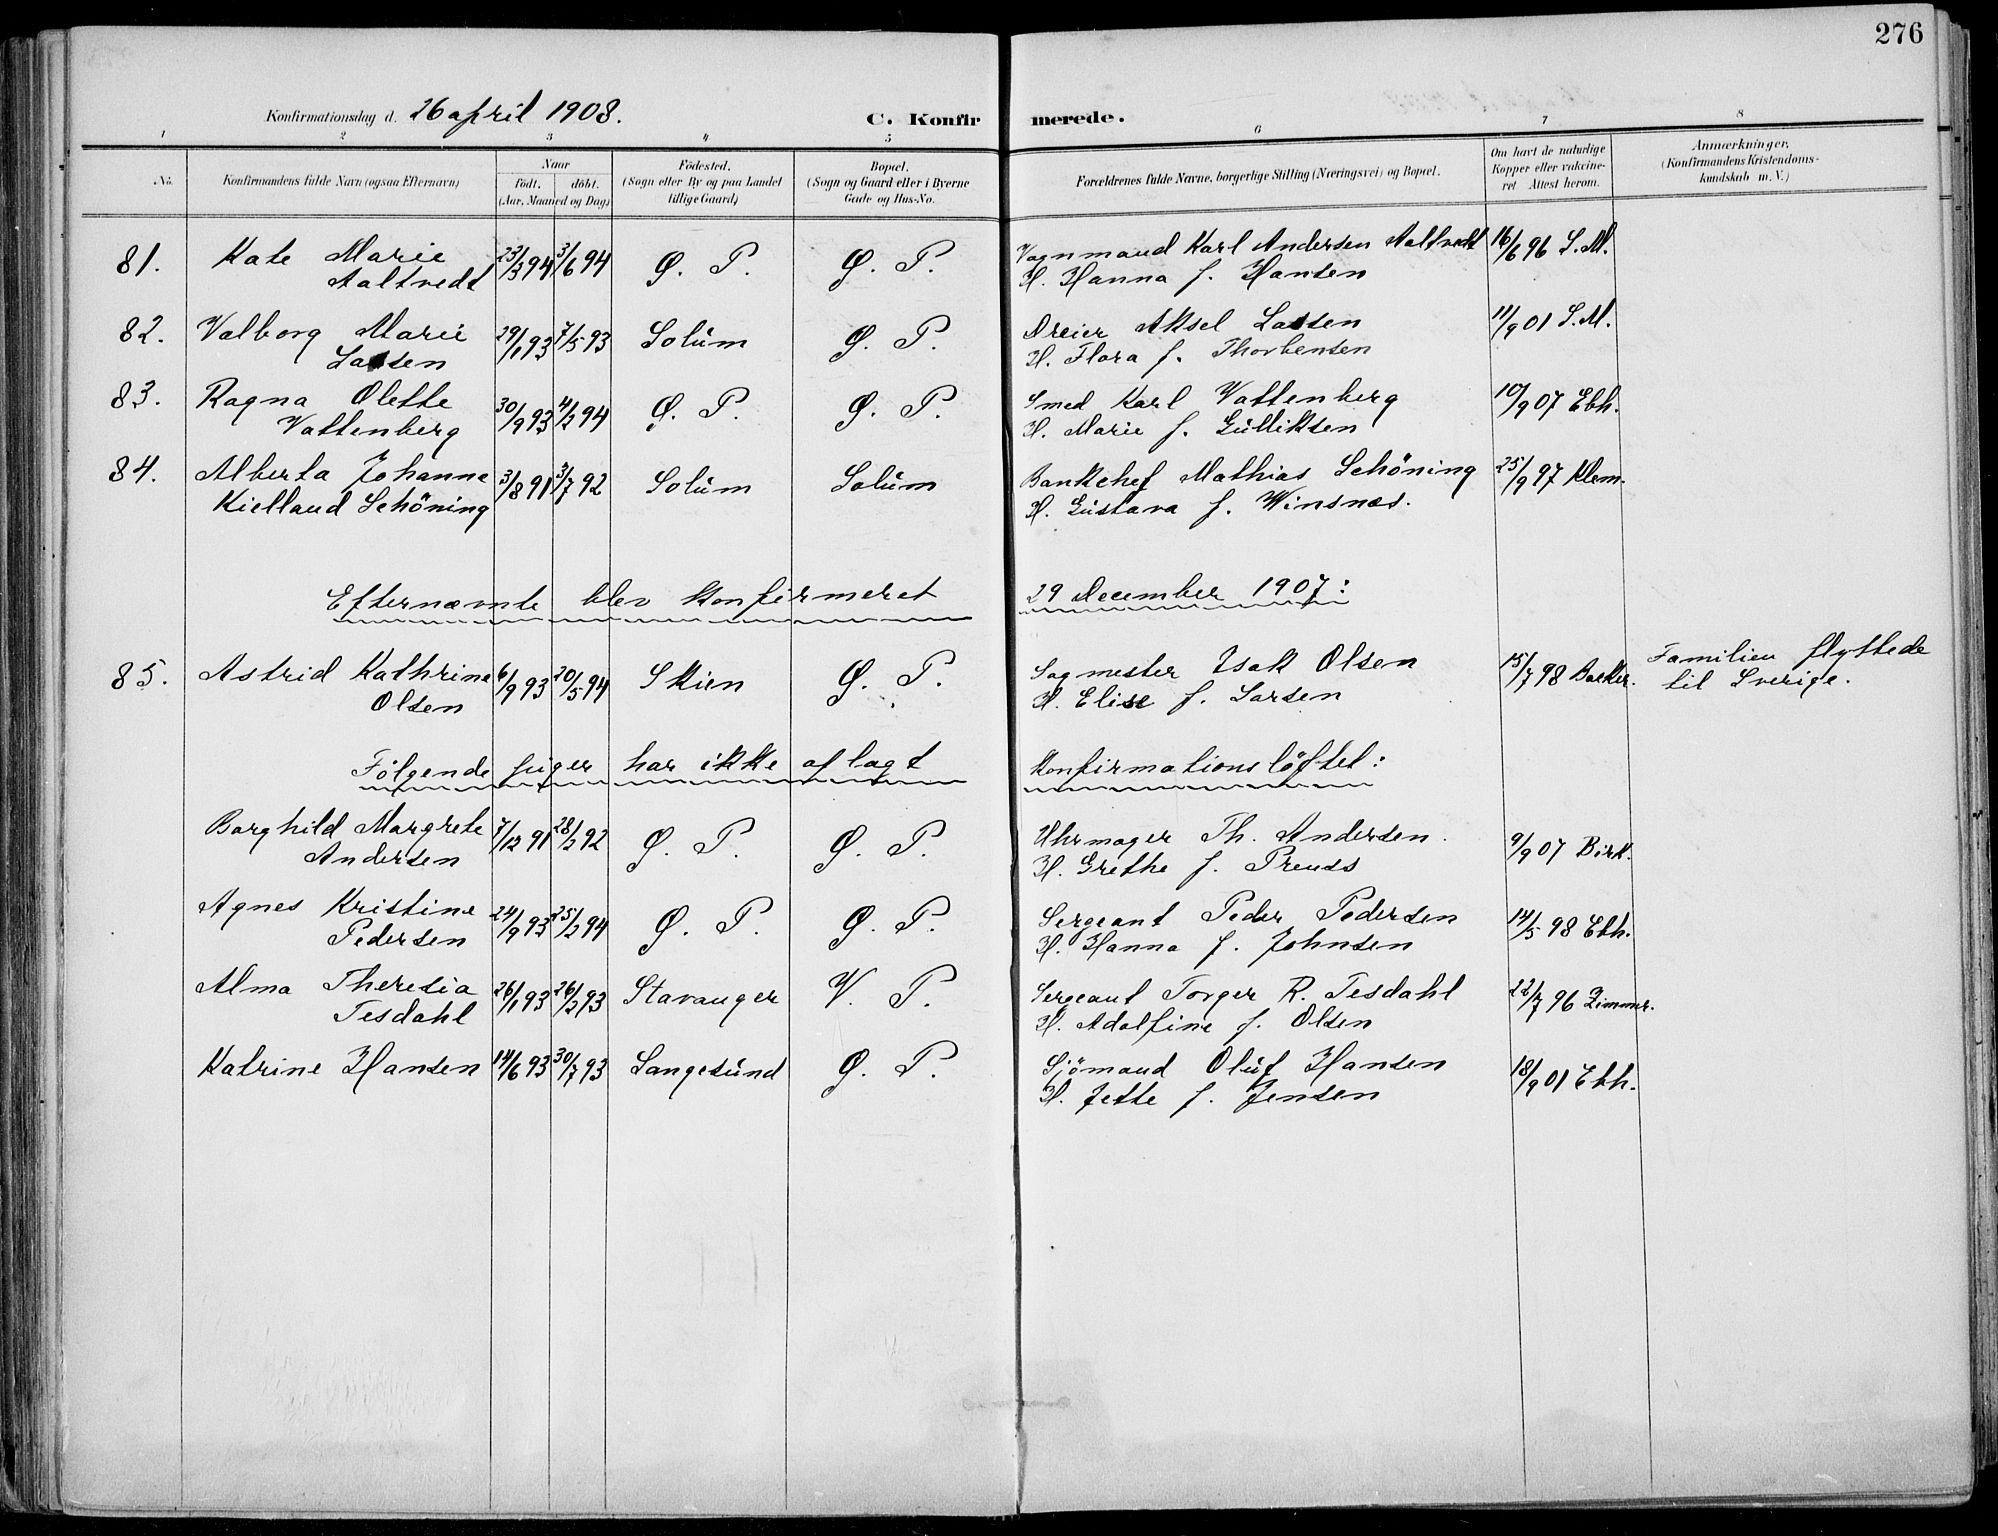 276
Konfirmationsdag d. 26 april 1908. C. Konfirmerede.
1 2 3 4 5 6 7 8
No. Konfirmandens fulde Navn (ogsaa Efternavn) Naar født. døbt. (Aar, Maaned og Dag) Fødested. (Sogn eller By og paa Landet tillige Gaard) Bopæl. (Sogn og Gaard eller i Byerne Gade og Hus-No. Forældrenes fulde Navne, borgerlige Stilling (Næringsvei) og Bopæl. Om havt de naturlige Kopper eller vakcineret Attest herom. Anmærkninger, (Konfirmandens Kristendomskundskab m. V.)
81. Kate Marie 23/3 94 3/6 94 Ø. P. Ø. P. Vognmand Karl Andersen Aaltvedt 16/6 96 S.M.
Aaltvedt H. Hanna f. Hansen
82. Valborg Marie 29/1 93 7/5 93 Solum Ø. P. Dreier Aksel Lassen 11/9 01 S.M.
Lassen H. Flora f. Thorbensen
83. Ragna Olette 30/9 93 4/2 94 Ø. P. Ø. P. Smed Karl Vattenberg 10/9 07 Ebh.
Vattenberg H. Marie f. Gulliksen
84. Alberta Johanne 3/8 91 3/7 92 Solum Solum Bankchef Mathias Schöning 25/9 97 Klem.
Kielland Schöning H. Gustava f. Winsnæs.
Efternævnte blev konfirmeret 29 December 1907:
85. Astrid Kathrine 6/9 93 20/5 94 Skien Ø. P. Sagmester Isak Olsen 15/7 98 Backer. Familien flyttede
Olsen H. Elise f. Larsen til Sverige.
Følgende piger har ikke aflagt konfirmationsløftet:
Borghild Margrete 7/12 91 28/2 92 Ø. P. Ø. P. Uhrmager Th. Andersen. 9/9 07 Birk.
Andersen H. Grethe f. Preuss
Agnes Kristine 24/9 93 25/2 94 Ø. P. Ø. P. Sergeant Peder Pedersen 14/5 98 Ebh.
Pedersen H. Hanna f. Johnsen
Alma Theresia 26/1 93 26/2 93 Stavanger V. P. Sergeant Torger R. Tesdahl 22/7 96 Zimmer.
Tesdahl H. Adolfine f. Olsen
Katrine Hansen 14/6 93 30/7 93 Langesund Ø. P. Sjömand Oluf Hansen 18/9 01 Ebh.
H. Jette f. Jensen